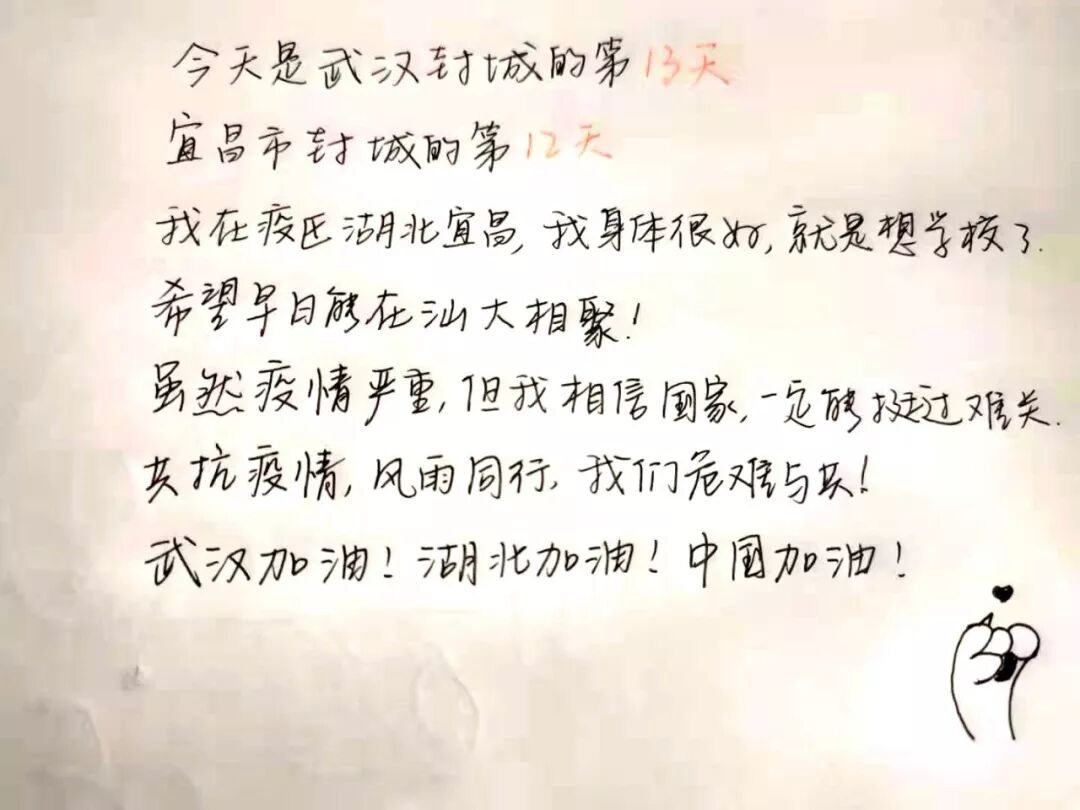 今天是武汉封城的第13天
宜昌市封城的第12天
我在疫区湖北宜昌,我身体很好,就是想学校了.
希望早日能在汕大相聚!
虽然疫情严重,但我相信国家,一定能挺过难关.
共抗疫情,风雨同行,我们危难与共!
武汉加油!湖北加油!中国加油!